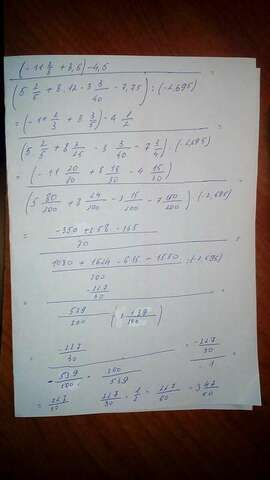 (-11 2/3 + 8,6) - 4,5 =
(5 2/5 + 8,12 - 3 3/40 - 7,75) : (-2,695)
= (-11 2/3 + 8 3/5) - 4 1/2
(5 2/5 + 8 3/25 - 3 3/40 - 7 3/4) : (-2,695)
= (-11 20/30 + 8 18/30 - 4 15/30)
(5 80/200 + 8 24/200 - 3 15/200 - 7 150/200) : (-2,695)
-350 + 258 - 135
30
1080 + 1624 - 615 - 1550
200 : (-2,695)
-227
30
539/200
-227
30 = -227/30
539/200 · 200/539 - 1
= 227/30 227/30 · 1/2 = 227/60 = 3 47/60